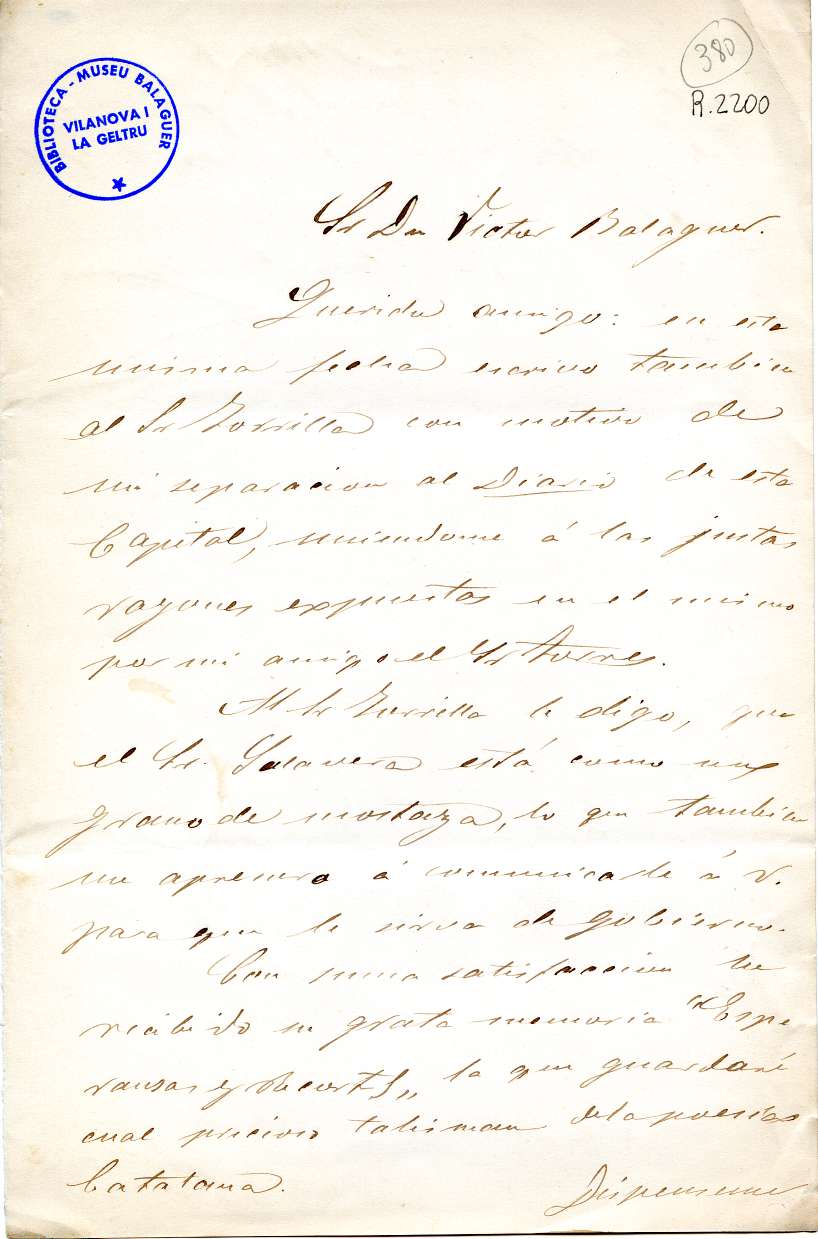 380
R.2200
BIBLIOTECA - MUSEU BALAGUER
VILANOVA I
LA GELTRU
Sr Dn Victor Balaguer.
Querido amigo: en esta
misma fecha escrivo tambien
al Sr Zorrilla con motivo de
mi separacion al Diario de esta
Capital, uniendome á las justas
razones expuestas en el mismo
por mi amigo el Sr Torres.
Al Sr Zorrilla le digo, que
el Sr. Salavera está como un
grano de mostaza, lo que tambien
me apresuro á comunicarle á V.
para que le sirva de gobierno.
Con suma satisfaccion he
recibido su grata memoria "Espe
ransas y Recorts„ la que guardaré
cual precioso talisman de la poesías
Catalana.
Dispenseme